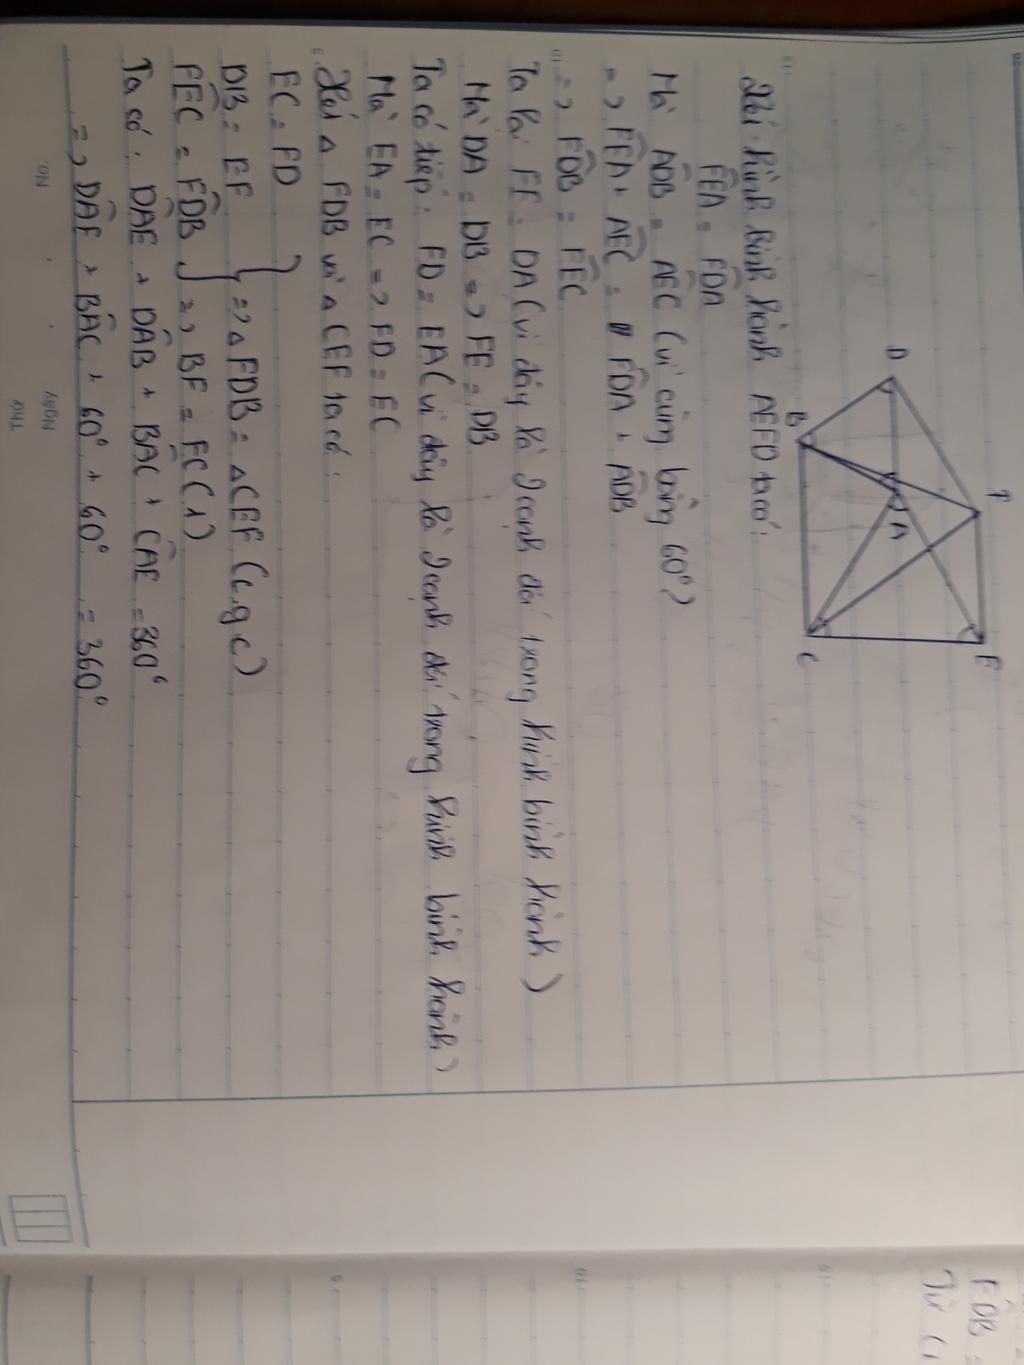 D
F
E
A
B
C
Xét hình bình hành AEFD ta có:
FÊA = FD̂A
Mà AD̂B = AÊC (vì cùng bằng 60°)
=> FÊA + AÊC = FD̂A + AD̂B
=> FD̂B = FÊC
Ta lại FE = DA (vì đây là 2 cạnh đối trong hình bình hành)
Mà DA = DB => FE = DB
Ta có tiếp: FD = EA (vì đây là 2 cạnh đối trong hình bình hành)
Mà EA = EC => FD = EC
Xét △ FDB và △ CEF ta có:
EC = FD
DB = EF } => △ FDB = △ CEF (c.g.c)
FÊC = FD̂B } => BF = FC (1)
Ta có: DÂE + DÂB + BÂC + CÂE = 360°
=> DÂE + BÂC + 60° + 60° = 360°
No.
Ngày
Thứ
FD̂B =
Từ (1